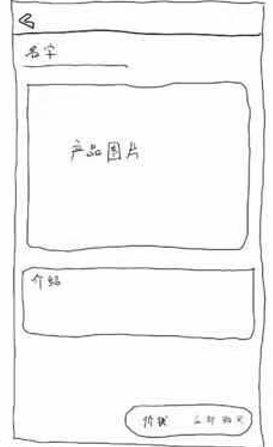 名字
产品图片
介绍
价钱 立即购买